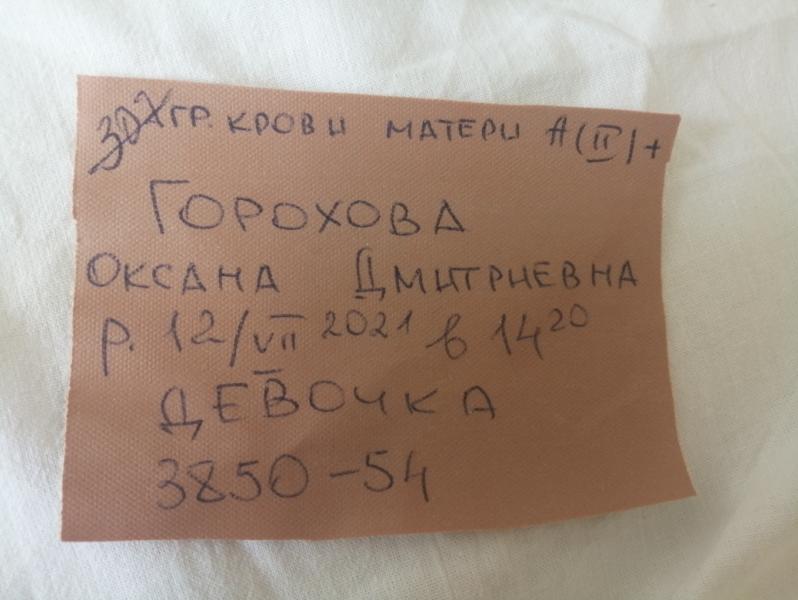 гр. крови матери A(II)+
Горохова
Оксана Дмитриевна
р. 12/VII 2021 в 14 20
девочка
3850-54